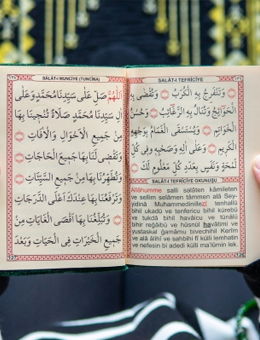 SALÂT-I MÜNCİYE (TUNCİNA)
اَللّٰهُمَّ صَلِّ عَلٰى سَيِّدِنَا مُحَمَّدٍ وَعَلٰى
اٰلِ سَيِّدِنَا مُحَمَّدٍ صَلَاةً تُنْجِينَا بِهَا
مِنْ جَمِيعِ الْاَهْوَالِ وَالْاٰفَاتِ
وَتَقْضِى لَنَا بِهَا جَمِيعَ الْحَاجَاتِ
وَتُطَهِّرُنَا بِهَا مِنْ جَمِيعِ السَّيِّئَاتِ
وَتَرْفَعُنَا بِهَا عِنْدَكَ اَعْلَى الدَّرَجَاتِ
وَتُبَلِّغُنَا بِهَا اَقْصَى الْغَايَاتِ مِنْ
جَمِيعِ الْخَيْرَاتِ فِى الْحَيَاتِ وَبَعْدَ
SALÂT-I TEFRİCİYE
وَتَنْفَرِجُ بِهِ الْكُرَبُ وَتُقْضٰى بِهِ
الْحَوَائِجُ وَتُنَالُ بِهِ الرَّغَائِبُ وَحُسْنُ
الْخَوَاتِمِ وَيُسْتَسْقَى الْغَمَامُ بِوَجْهِهِ
الْكَرِيمِ وَعَلٰى اٰلِهِ وَصَحْبِهِ فِى كُلِّ
لَمْحَةٍ وَنَفَسٍ بِعَدَدِ كُلِّ مَعْلُومٍ لَكَ
SALÂT-I TEFRİCİYE OKUNUŞU
Allâhumme salli salâten kâmileten
ve sellim selâmen tâmmen alâ Sey-
yidinâ Muhammedinillezî tenhallu
bihil ukadü ve tenfericu bihil kürebü
ve tukdâ bihil havâicu ve tünâlü
bihir reğâibu ve hüsnül havâtimi ve
yustaskal ğamâmu bivechihil Kerîm
ve alâ âlihî ve sahbihî fî külli lemhatin
ve nefesin bi adedi külli ma'lûmin lek.